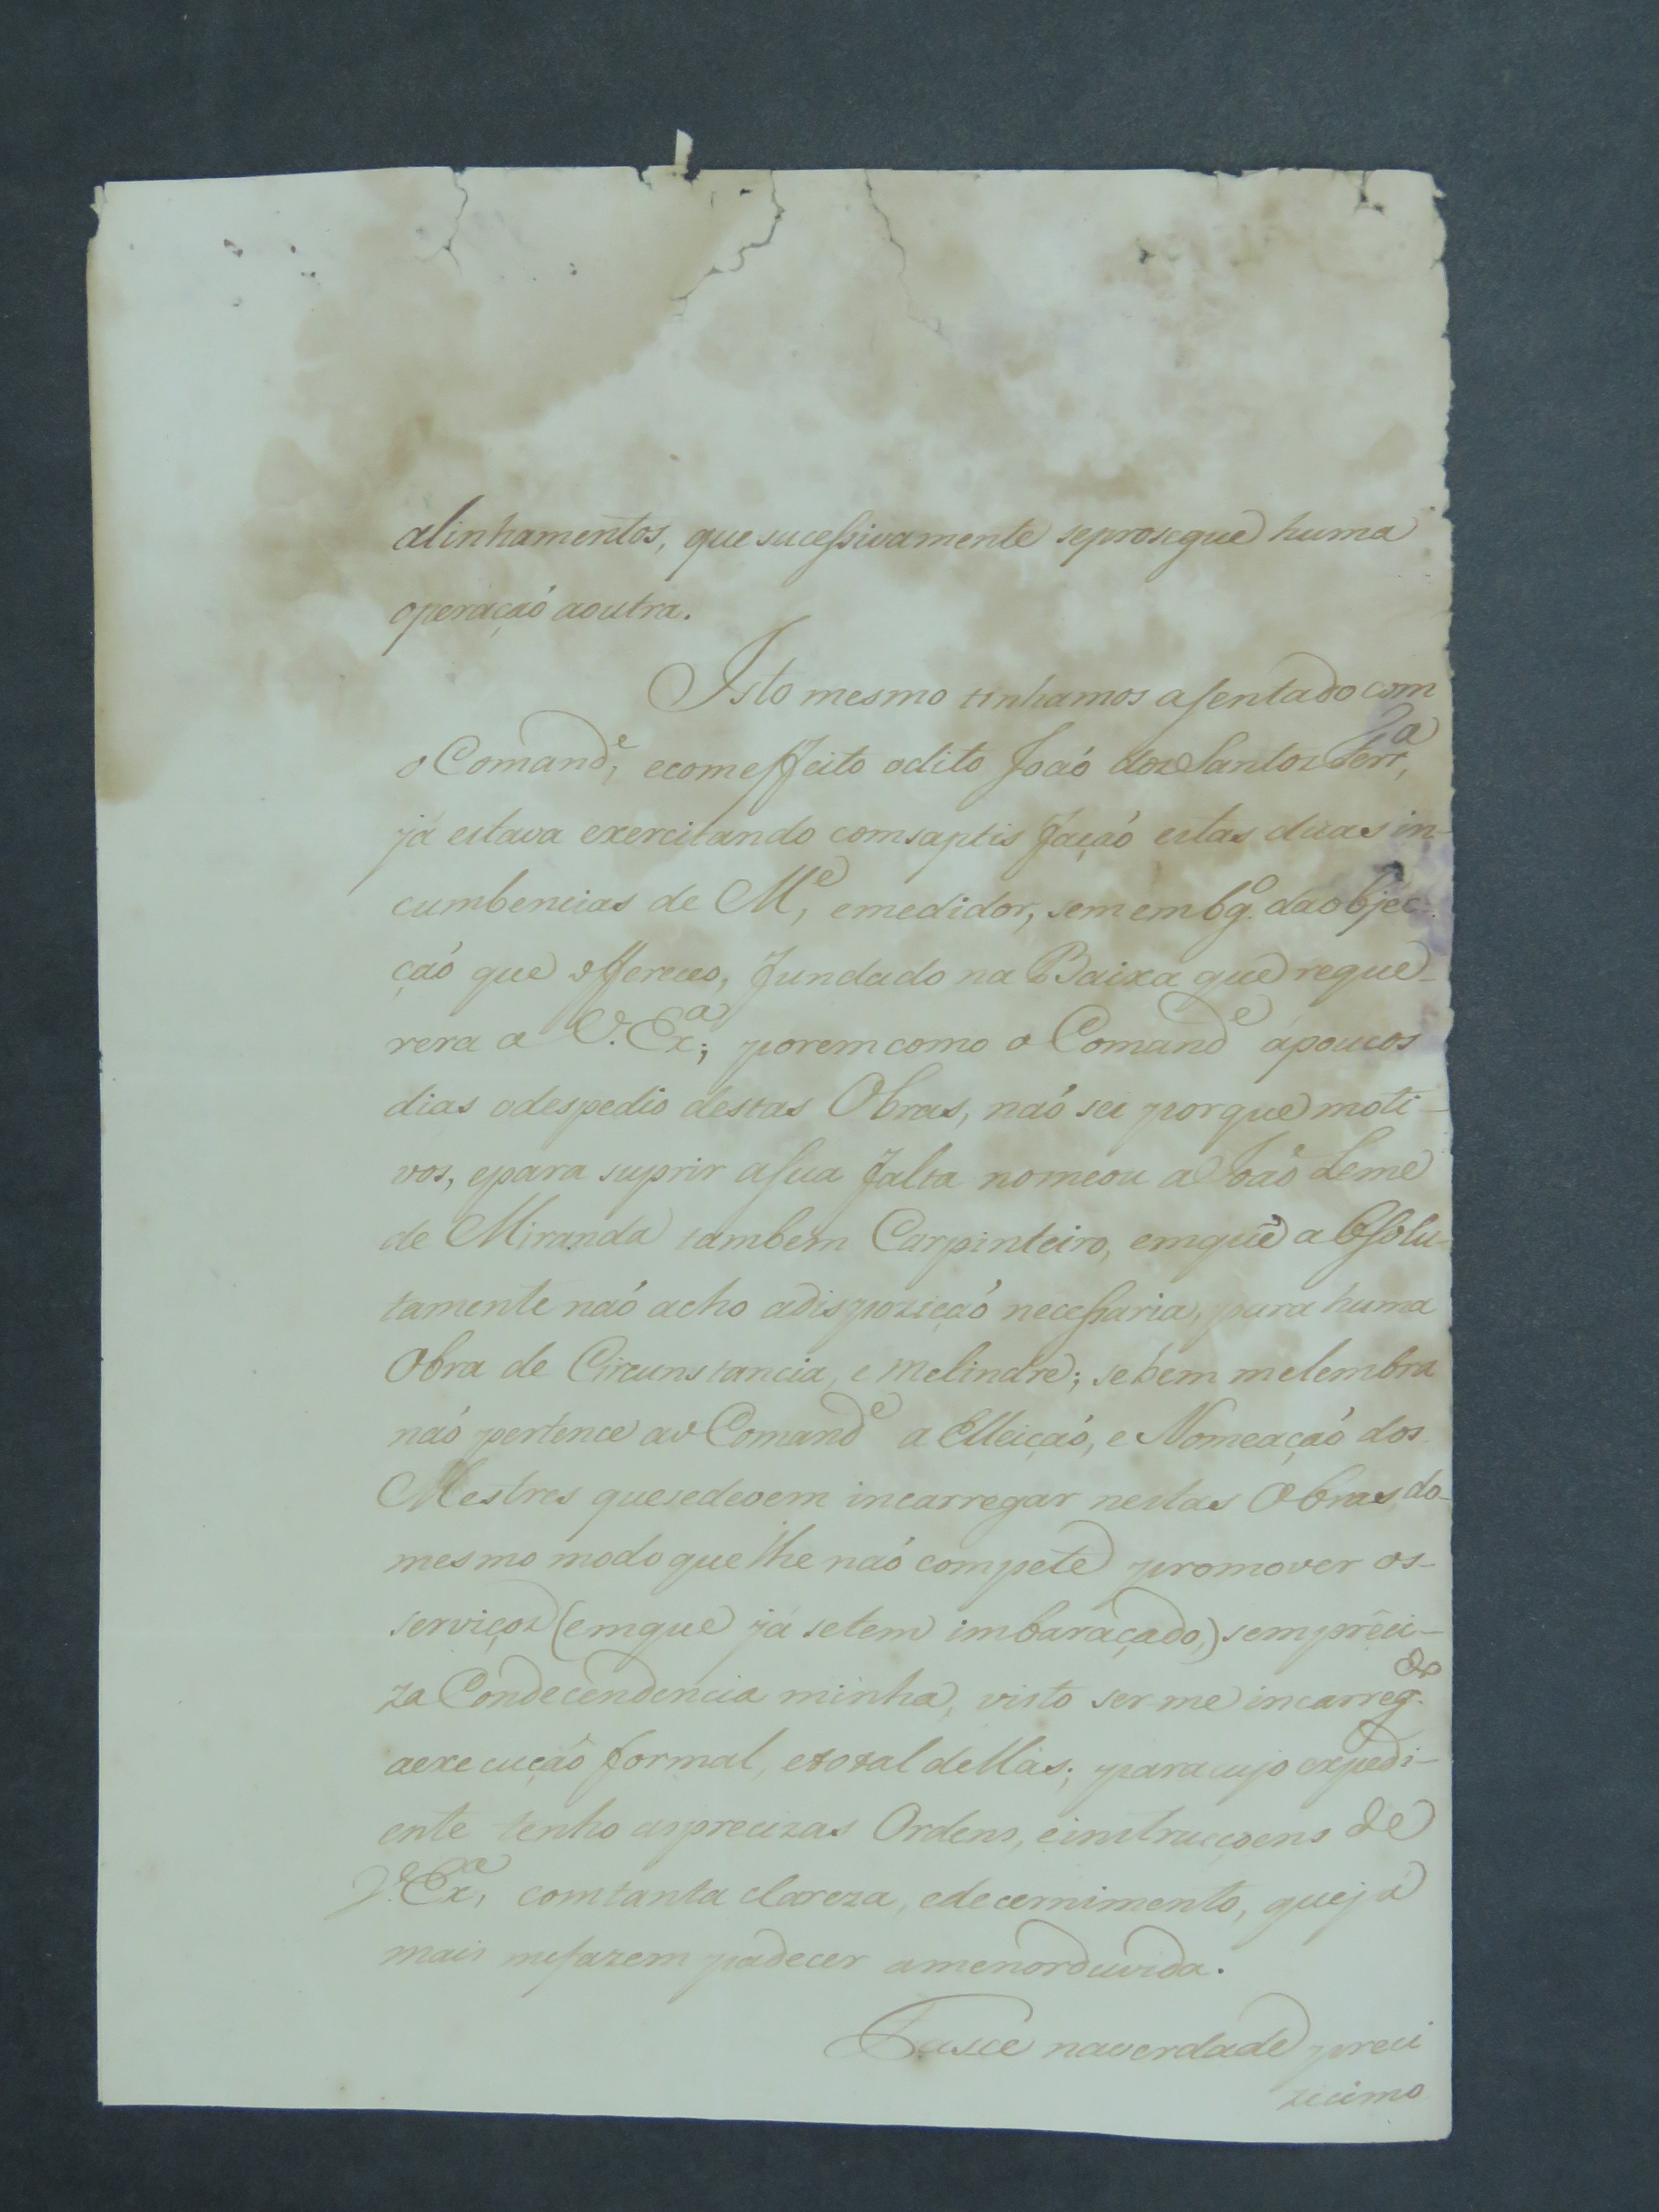 alinhamentos, que sucessivamente seprosegue huma
operaçaó aoutra.
Isto mesmo tinhamos asentado com
o Comand.e, ecomeffeito odito Joaó dos Santos Ferr.a,
já estava exercitando comsaptisfaçaó estas duas in-
cumbencias de M.e, emedidor, sem embg.o da objec-
çaó que offereceo, fundado na Baixa que reque-
rera a V. Ex.a; porem como o Comand.e apoucos
dias odespedio destas Obras, naó sei porque moti-
vos, epara suprir asua falta nomeou a Joaó Leme
de Miranda tambem Carpinteiro, emque absolu-
tamente naó acho adispoziçaó necessaria, para huma
Obra de Circunstancia, e melindre; se bem melembra
naó pertence ao Comand.e a Elleiçaó, e Nomeaçaó dos
Mestres quesedevem incarregar nestas Obras, do-
mesmo modo que lhe naó compete promover os-
serviços (emque já setem imbaraçado,) sem preci-
za Condecendencia minha, visto ser me incarreg.do
aexecuçaõ formal, etotal dellas; para cujo expedi-
ente tenho asprecizas Ordens, e instrucçoens de
V. Ex.a, comtanta clareza, edecernimento, queja
mais mefazem padecer amenorduvida.
Fasce naverdade preci
zicimo